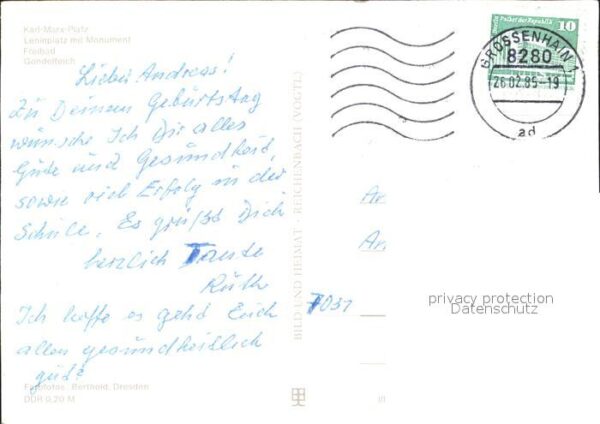 Karl-Marx-Platz
Leninplatz mit Monument
Freibad
Gondelteich
Lieber Andreas!
Zu Deinem Geburtstag
wünsche Ich Dir alles
Gute und Gesundheit,
sowie viel Erfolg in der
Schule. Es grüßt Dich
herzlich Tante
Ruth
Ich hoffe es gehd Euch
allen gesundheitlich
gut?
Farbfotos: Berthold, Dresden
DDR 0,20 M
BILD UND HEIMAT · REICHENBACH (VOGTL)
Palast der Republik 10
GROSSENHAIN 1
8280
26.02.85-19
ad
An
An
7031
privacy protection
Datenschutz